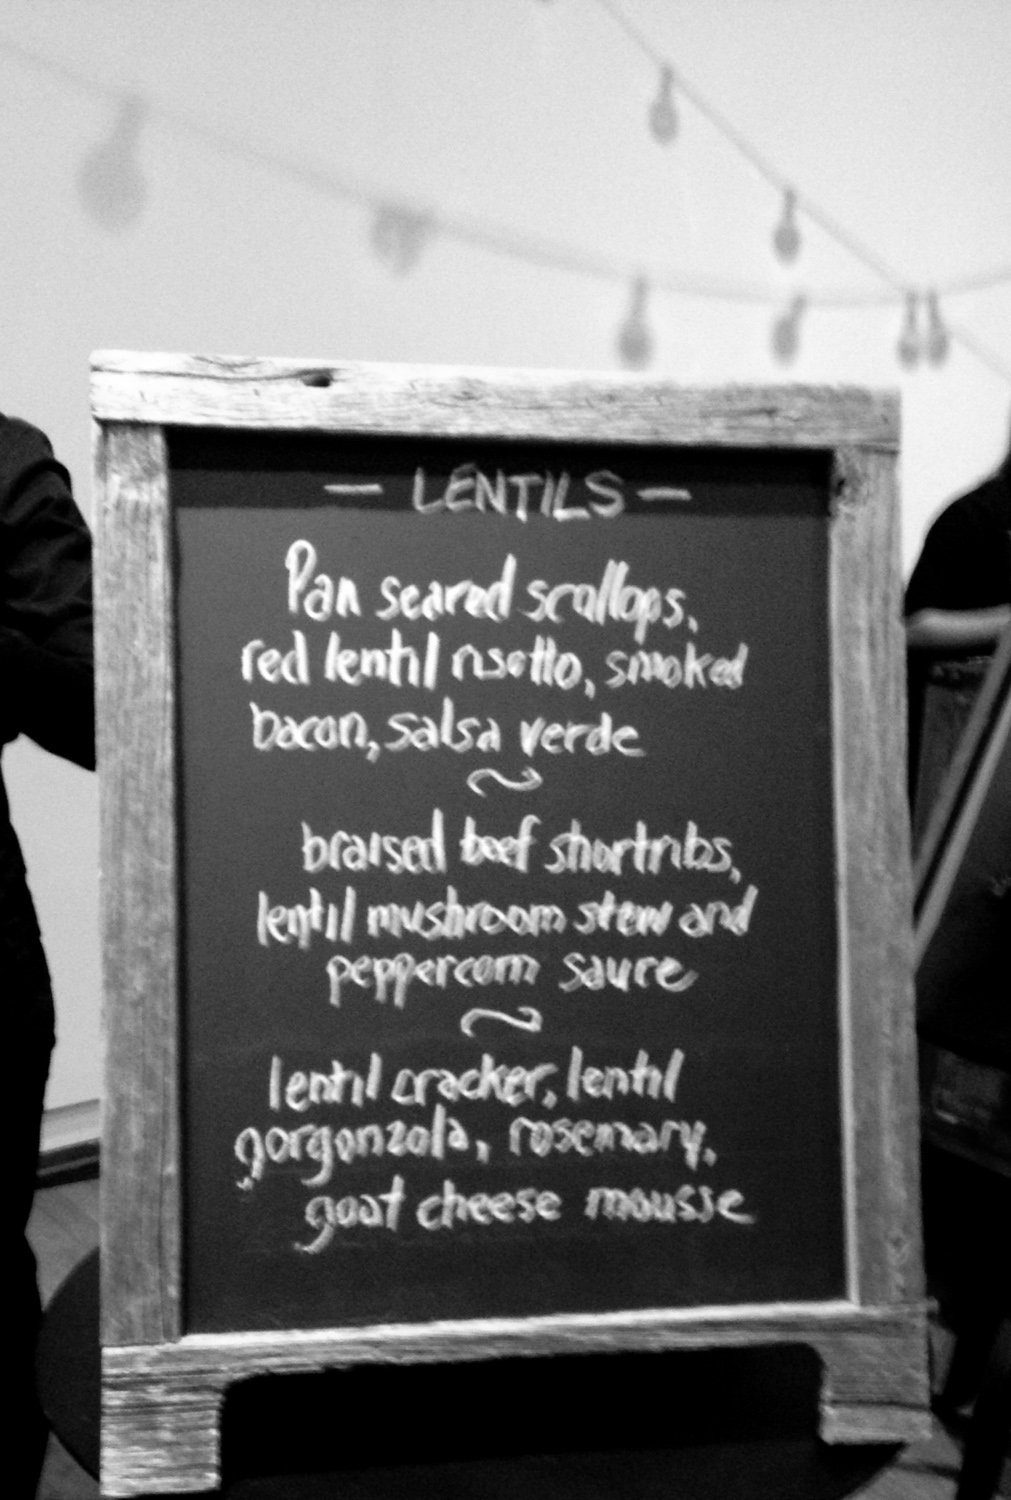 — LENTILS —
Pan seared scallops,
red lentil risotto, smoked
bacon, salsa verde
~
braised beef shortribs,
lentil mushroom stew and
peppercorn sauce
~
lentil cracker, lentil
gorgonzola, rosemary,
goat cheese mousse